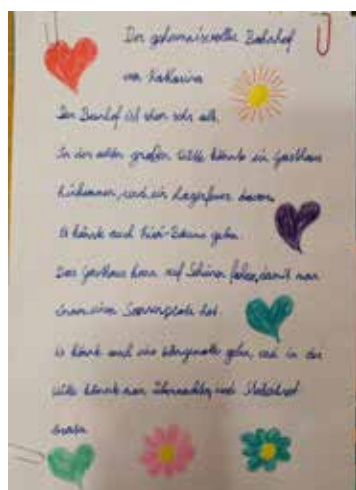 Der geheimnisvolle Bahnhof
von Katharina
Der Bahnhof ist schon sehr alt.
In der alten großen Hütte könnte ein Gasthaus
und ein Lagerfeuer davor.
Es könnte auch Kiwi-Bäume geben.
Das Gasthaus kann auf Schienen fahren, damit man
immer einen Sonnenplatz hat.
Es könnte auch eine geben, und in der
Hütte könnte man übernachten, und Stockbrot